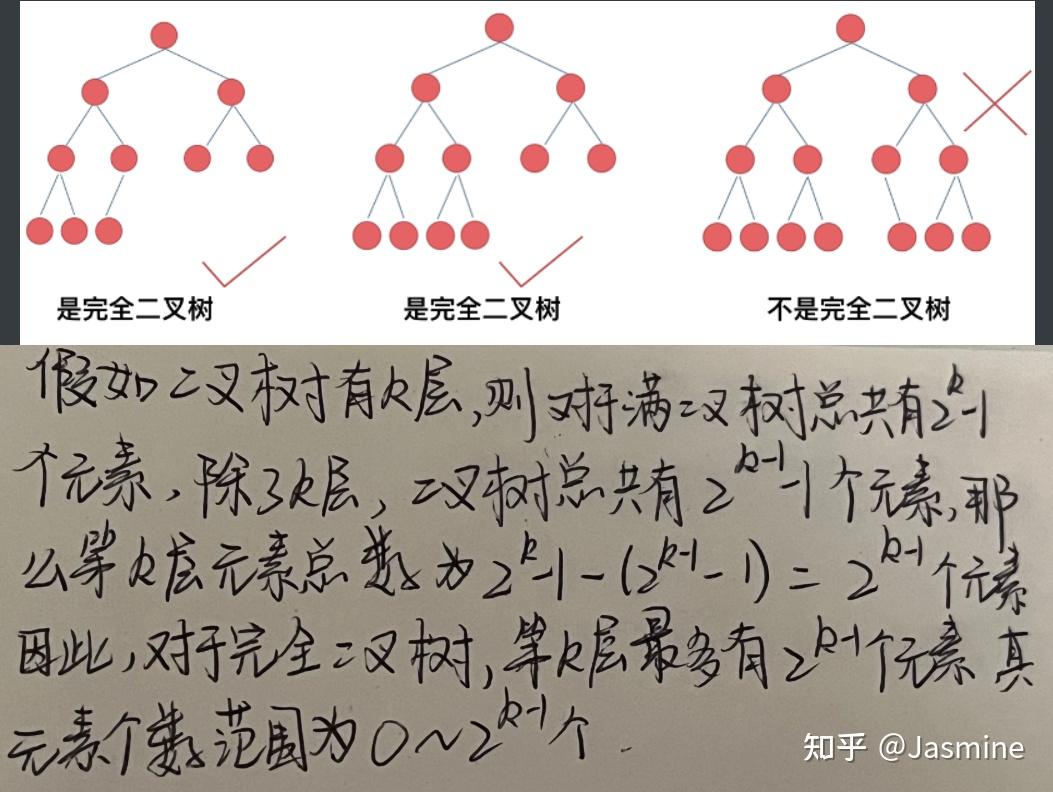 是完全二叉树
是完全二叉树
不是完全二叉树
假如二叉树有k层,则对于满二叉树总共有2^k-1
个元素,除了k层,二叉树总共有2^{k-1}-1个元素,那
么第k层元素总数为2^k-1-(2^{k-1}-1)=2^{k-1}个元素
因此,对于完全二叉树,第k层最多有2^{k-1}个元素 其
元素个数范围为0~2^{k-1}个.
知乎 @Jasmine